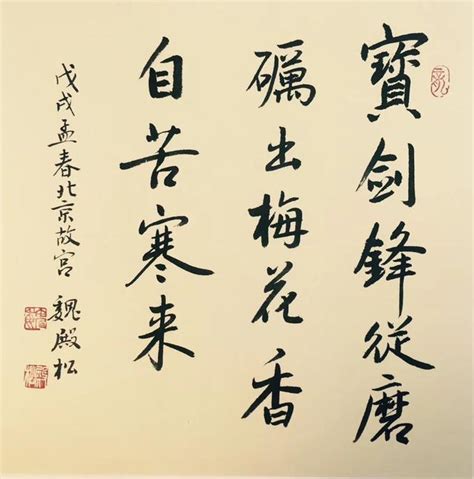 寶劍鋒從磨
礪出梅花香
自苦寒来
戊戌孟春北京故宫 魏殿松